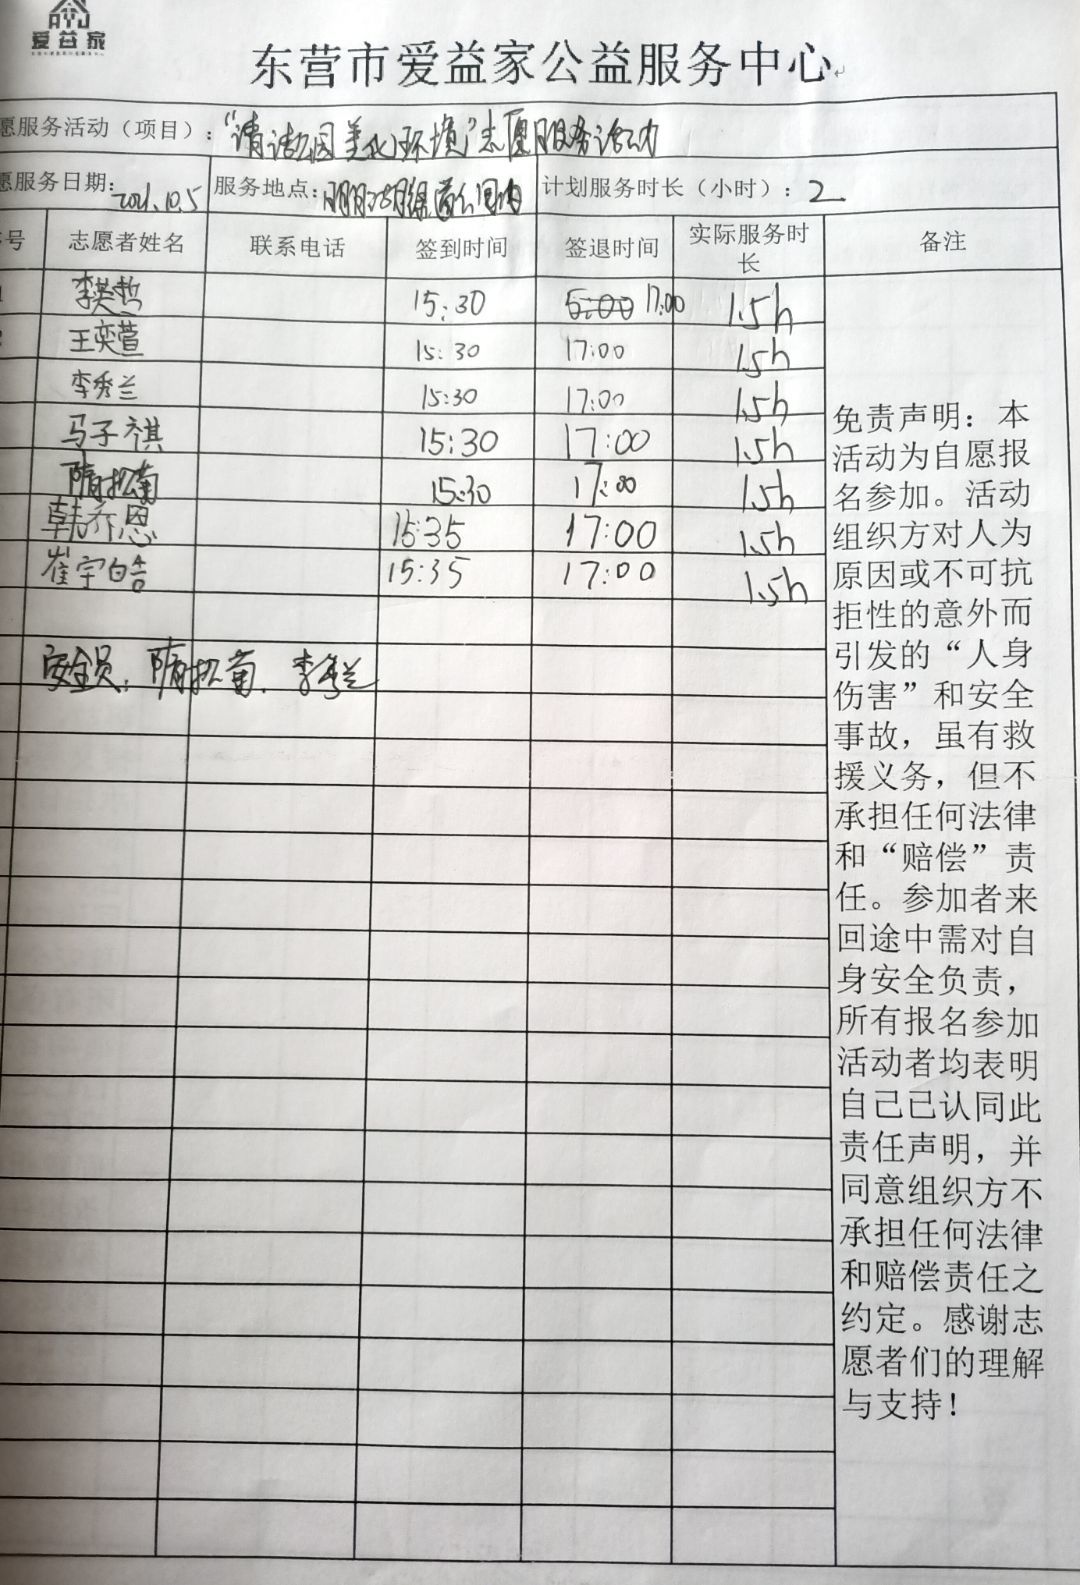 爱益家
东营市爱益家公益服务中心
愿服务活动（项目）：“清洁校园美化环境”志愿服务活动
愿服务日期：2021.10.5 服务地点： 计划服务时长（小时）：2
号 志愿者姓名 联系电话 签到时间 签退时间 实际服务时长 备注
1 李英哲 15:30 17:00 1.5h
2 王奕萱 15:30 17:00 1.5h
李秀兰 15:30 17:00 1.5h
马子祺 15:30 17:00 1.5h
隋松菊 15:30 17:00 1.5h
韩乔恩 15:35 17:00 1.5h
崔宇皓 15:35 17:00 1.5h
安全员：隋松菊、李秀兰
免责声明：本
活动为自愿报
名参加。活动
组织方对人为
原因或不可抗
拒性的意外而
引发的“人身
伤害”和安全
事故，虽有救
援义务，但不
承担任何法律
和“赔偿”责
任。参加者来
回途中需对自
身安全负责，
所有报名参加
活动者均表明
自己已认同此
责任声明，并
同意组织方不
承担任何法律
和赔偿责任之
约定。感谢志
愿者们的理解
与支持！